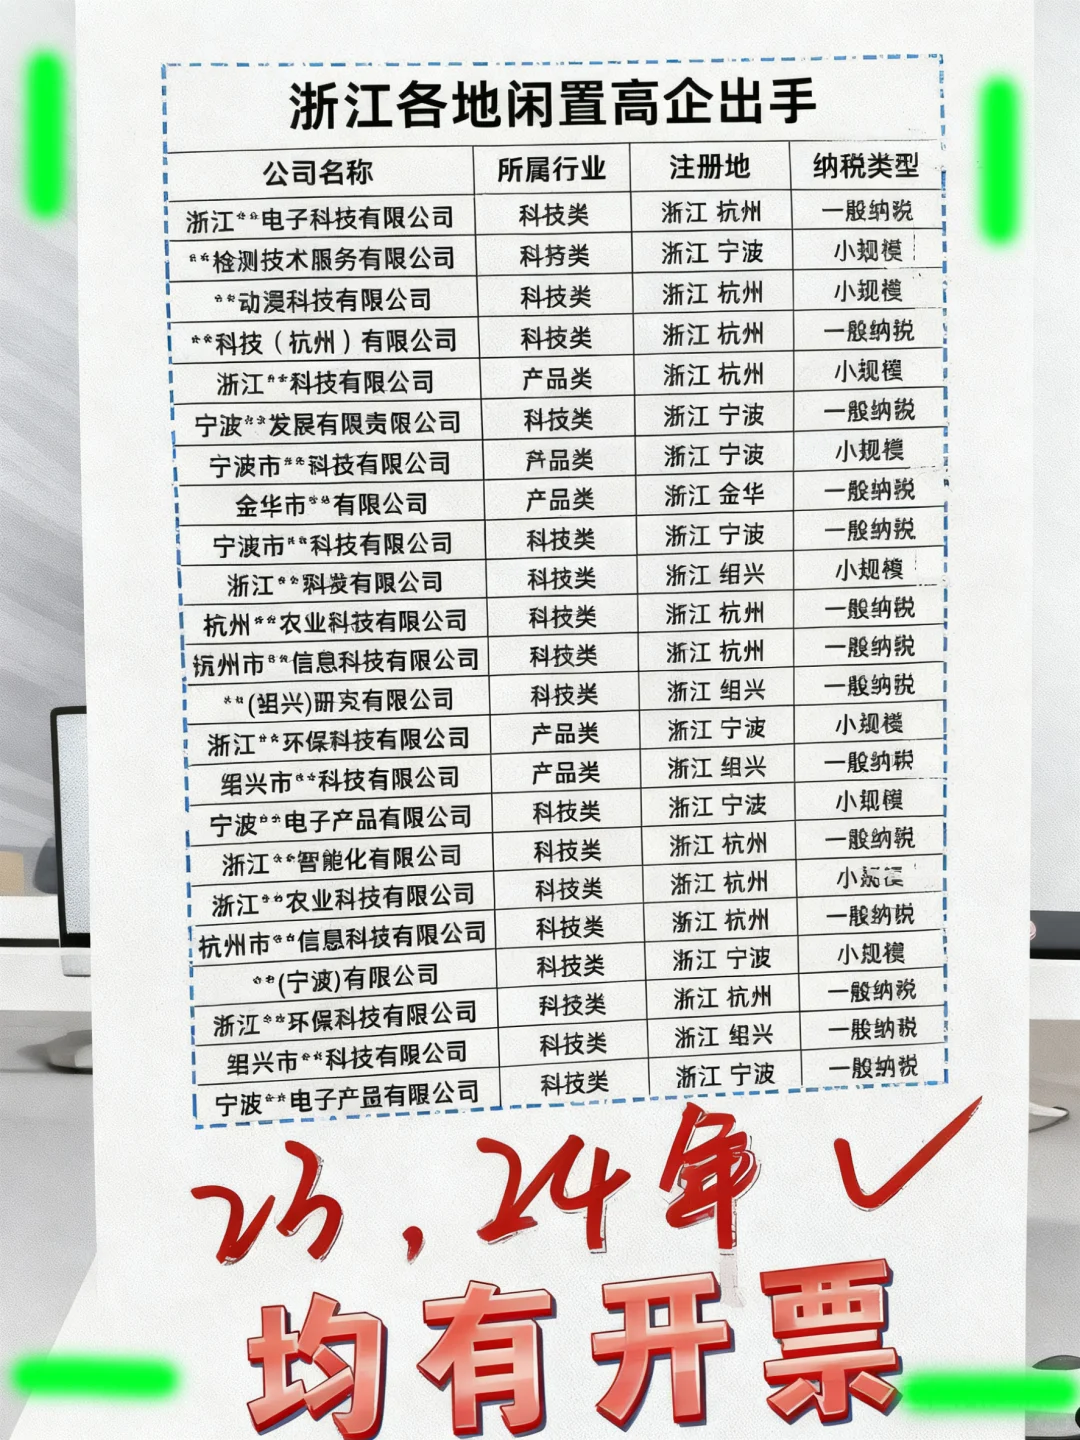 浙江各地闲置高企出手
公司名称 所属行业 注册地 纳税类型
浙江**电子科技有限公司 科技类 浙江 杭州 一般纳税
**检测技术服务有限公司 科技类 浙江 宁波 小规模
**动漫科技有限公司 科技类 浙江 杭州 小规模
**科技（杭州）有限公司 科技类 浙江 杭州 一般纳税
浙江**科技有限公司 产品类 浙江 杭州 小规模
宁波**发展有限责限公司 科技类 浙江 宁波 一般纳税
宁波市**科技有限公司 产品类 浙江 宁波 小规模
金华市**有限公司 产品类 浙江 金华 一般纳税
宁波市**科技有限公司 科技类 浙江 宁波 一般纳税
浙江**科发有限公司 科技类 浙江 绍兴 小规模
杭州**农业科技有限公司 科技类 浙江 杭州 一般纳税
杭州市**信息科技有限公司 科技类 浙江 杭州 一般纳税
**(绍兴)研究有限公司 科技类 浙江 绍兴 一般纳税
浙江**环保科技有限公司 产品类 浙江 宁波 小规模
绍兴市**科技有限公司 产品类 浙江 绍兴 一般纳税
宁波**电子产品有限公司 科技类 浙江 宁波 小规模
浙江**智能化有限公司 科技类 浙江 杭州 一般纳税
浙江**农业科技有限公司 科技类 浙江 杭州 小规模
杭州市**信息科技有限公司 科技类 浙江 杭州 一般纳税
**(宁波)有限公司 科技类 浙江 宁波 小规模
浙江**环保科技有限公司 科技类 浙江 杭州 一般纳税
绍兴市**科技有限公司 科技类 浙江 绍兴 一般纳税
宁波**电子产品有限公司 科技类 浙江 宁波 一般纳税
23，24年 ✓
均有开票